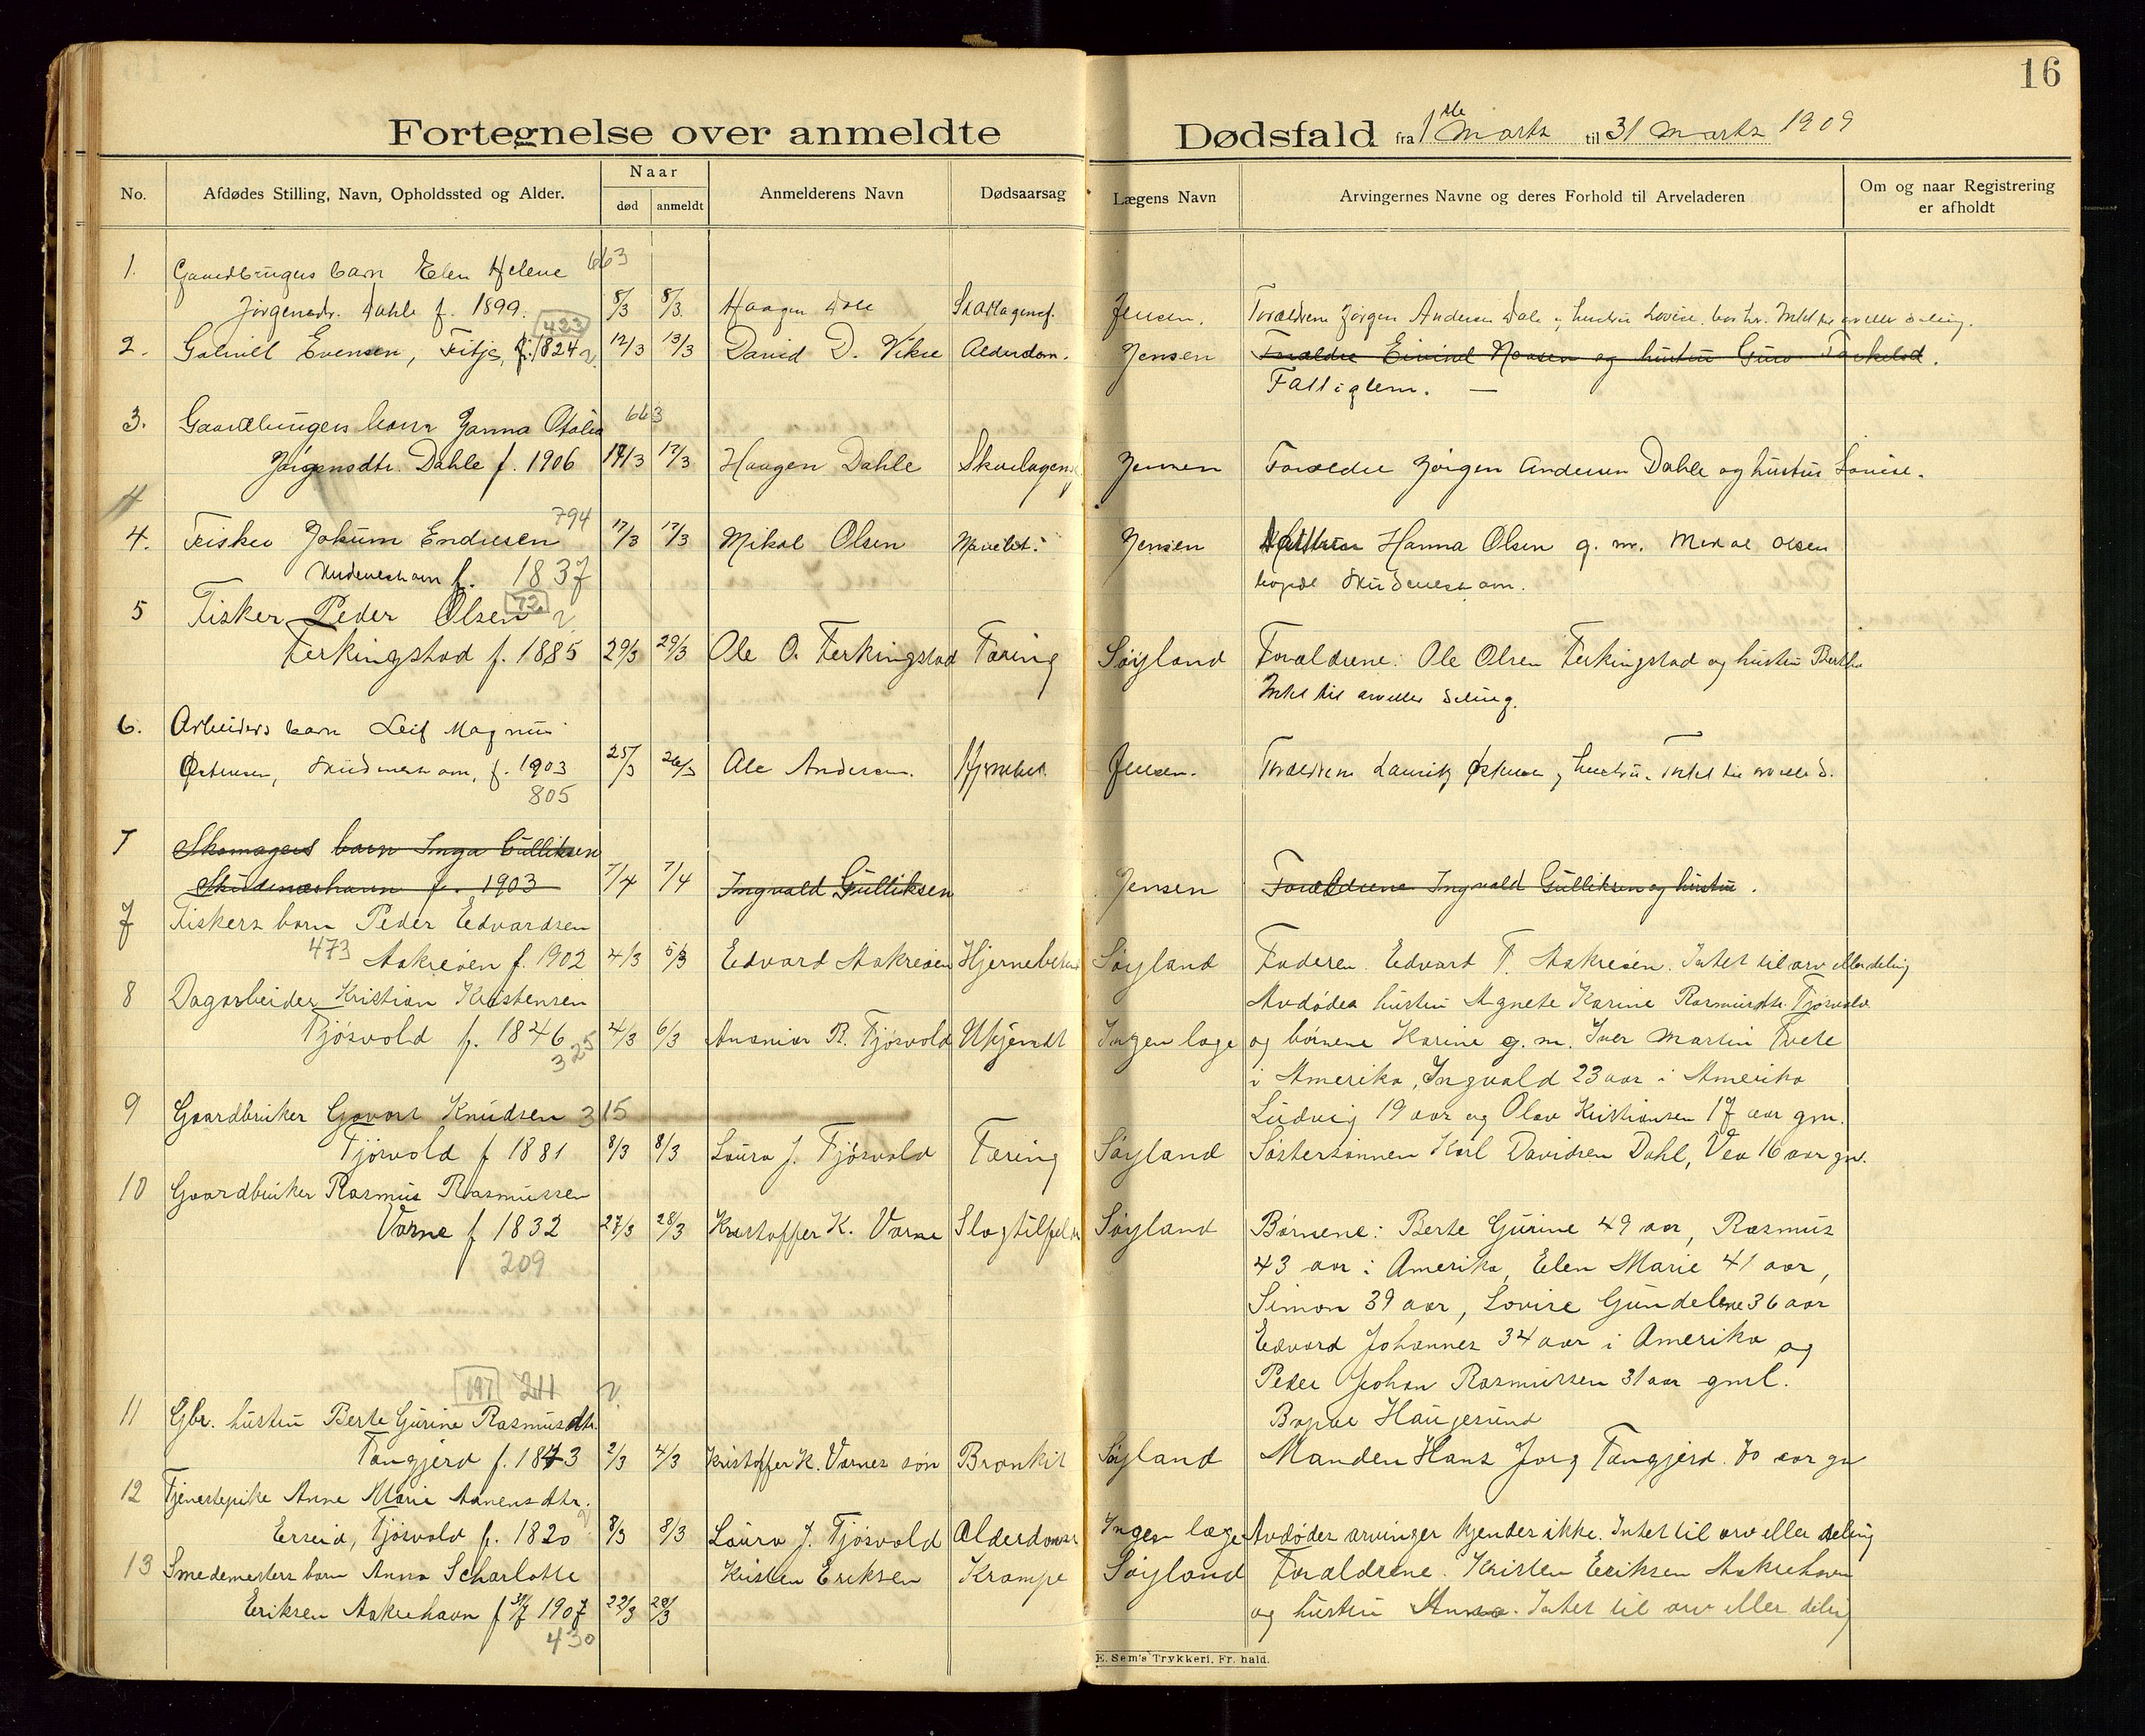 16
Fortegnelse over anmeldte Dødsfald fra 1ste Marts til 31 Marts 1909
No. Afdødes Stilling, Navn, Opholdssted og Alder. Naar død anmeldt Anmelderens Navn Dødsaarsag Lægens Navn Arvingernes Navne og deres Forhold til Arveladeren Om og naar Registrering er afholdt
1. Gaardbrugers barn Elen Helene 663
Jørgensdr. Dahle f. 1899. 8/3 8/3 Haagen Dale Skarlagensf. Jensen. Forældrene Jørgen Andersen Dale og hustru Lovise. Intet til arv eller deling.
423
2. Gabriel Evensen, Fitje, f. 1824 v. 12/3 13/3 David D. Vikse Alderdom. Jensen Forældre Eivind og hustru Guro
Fattiglem. —
3. Gaardbrugers barn Janna Otalia 663
Jørgensdtr. Dahle f. 1906 17/3 17/3 Haagen Dahle Skarlagensf. Jensen Forældre Jørgen Andersen Dahle og hustru Lovise.
794
4. Fisker Jokum Endresen 17/3 17/3 Mikal Olsen Jensen Hanna Olsen g. m. Mikal Olsen
Skudeneshavn f. 1837 bopæl Skudeneshavn.
5 Fisker Peder Olsen 72 v
Ferkingstad f. 1885 29/3 29/3 Ole O. Ferkingstad Tæring Søyland Forældrene: Ole Olsen Ferkingstad og hustru Bertha
Intet til arv eller deling.
6. Arbeiders barn Leif Magnus
Østensen, Skudeneshavn, f. 1903 25/3 26/3 Ole Andersen. Jensen. Forældrene Lauritz Østensen og hustru. Intet til arv eller d.
805
7 Skomagers barn Inga Gulliksen
Skudeneshavn f. 1903 7/4 7/4 Ingvald Gulliksen Jensen Forældrene Ingvald Gulliksen og hustru.
7 Fiskers barn Peder Edvardsen
473 Aakreøen f. 1902 4/3 5/3 Edvard Aakreøen Hjernebetænd Søyland Faderen Edvard T. Aakreøen. Intet til arv eller deling
8 Dagarbeider Kristian Kristensen Avdødes hustru Agnete Karine Rasmusdtr. Tjøsvold
Tjøsvold f. 1846 325 4/3 6/3 Ananias B. Tjøsvold Ukjendt Ingen læge og børnene Karine g. m. Iver Martin Tvete
i Amerika, Ingvald 23 aar i Amerika
Ludvig 19 aar og Olav Kristiansen 17 aar gm.
9 Gaardbruker Govart Knudsen 315
Tjøsvold f 1881 8/3 8/3 Laura J. Tjøsvold Tæring Søyland Søstersønnen Karl Davidsen Dahl, Vea 16 aar gm.
10 Gaardbruker Rasmus Rasmussen
Varne f 1832 27/3 28/3 Kristoffer K. Varne Slagtilfælde Søyland Børnene: Berte Gurine 49 aar, Rasmus
209 43 aar i Amerika, Elen Marie 41 aar,
Simon 39 aar, Lovise Gundelene 36 aar
Edvard Johannes 34 aar i Amerika og
Peder Johan Rasmussen 31 aar gml.
197 211 v.
11 Gbr. hustru Berte Gurine Rasmusdtr. Bopæl Haugesund
Tangjerd f. 1843 2/3 4/3 Kristoffer K. Varnes søn Bronkit Søyland Manden Hans Jørg Tangjerd. 70 aar gm
12 Tjenestepike Anne Marie Aanensdtr.
Erseid, Tjøsvold f. 1820 v 8/3 8/3 Laura J. Tjøsvold Alderdomsv Ingen læge Avdødes arvinger kjendes ikke. Intet til arv eller deling
13 Smedemesters barn Anna Scharlotte Kristen Eriksen Krampe Søyland Forældrene. Kristen Eriksen Aakrehavn
Eriksen Aakrehavn f 1907 22/3 28/3 og hustru Anna. Intet til arv eller deling
430
E. Sem's Trykkeri, Fr. hald.